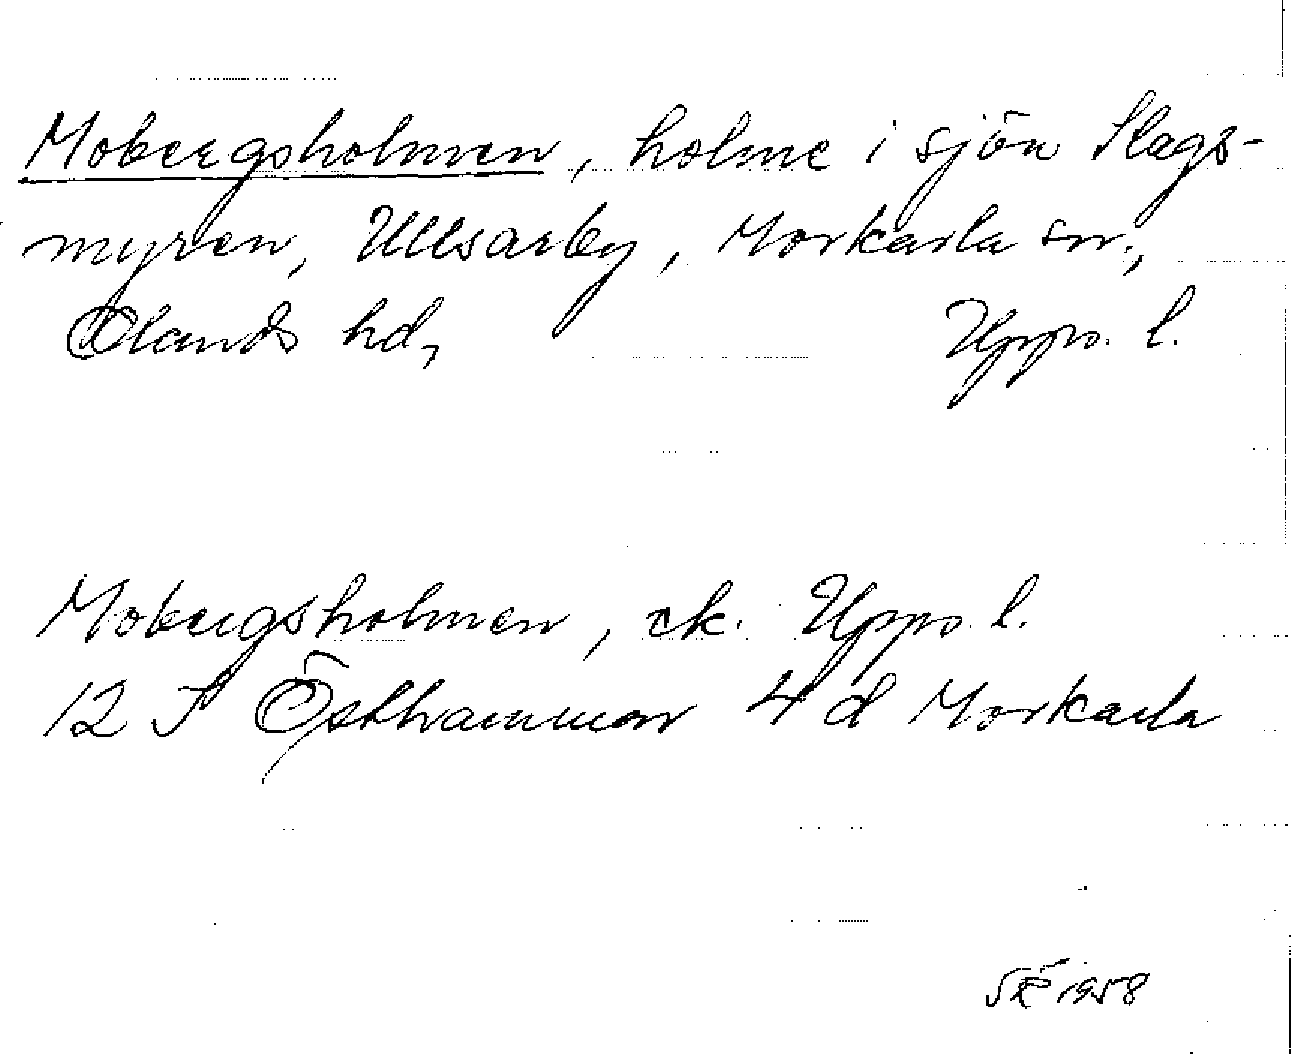 Mobergsholmen, holme i sjön Slags-
myren, Ullsarby, Morkarla sn.,
Olands hd, Upps. l.
Mobergsholmen, ek. Upps. l.
12 I Östhammar 4 d Morkarla
1958